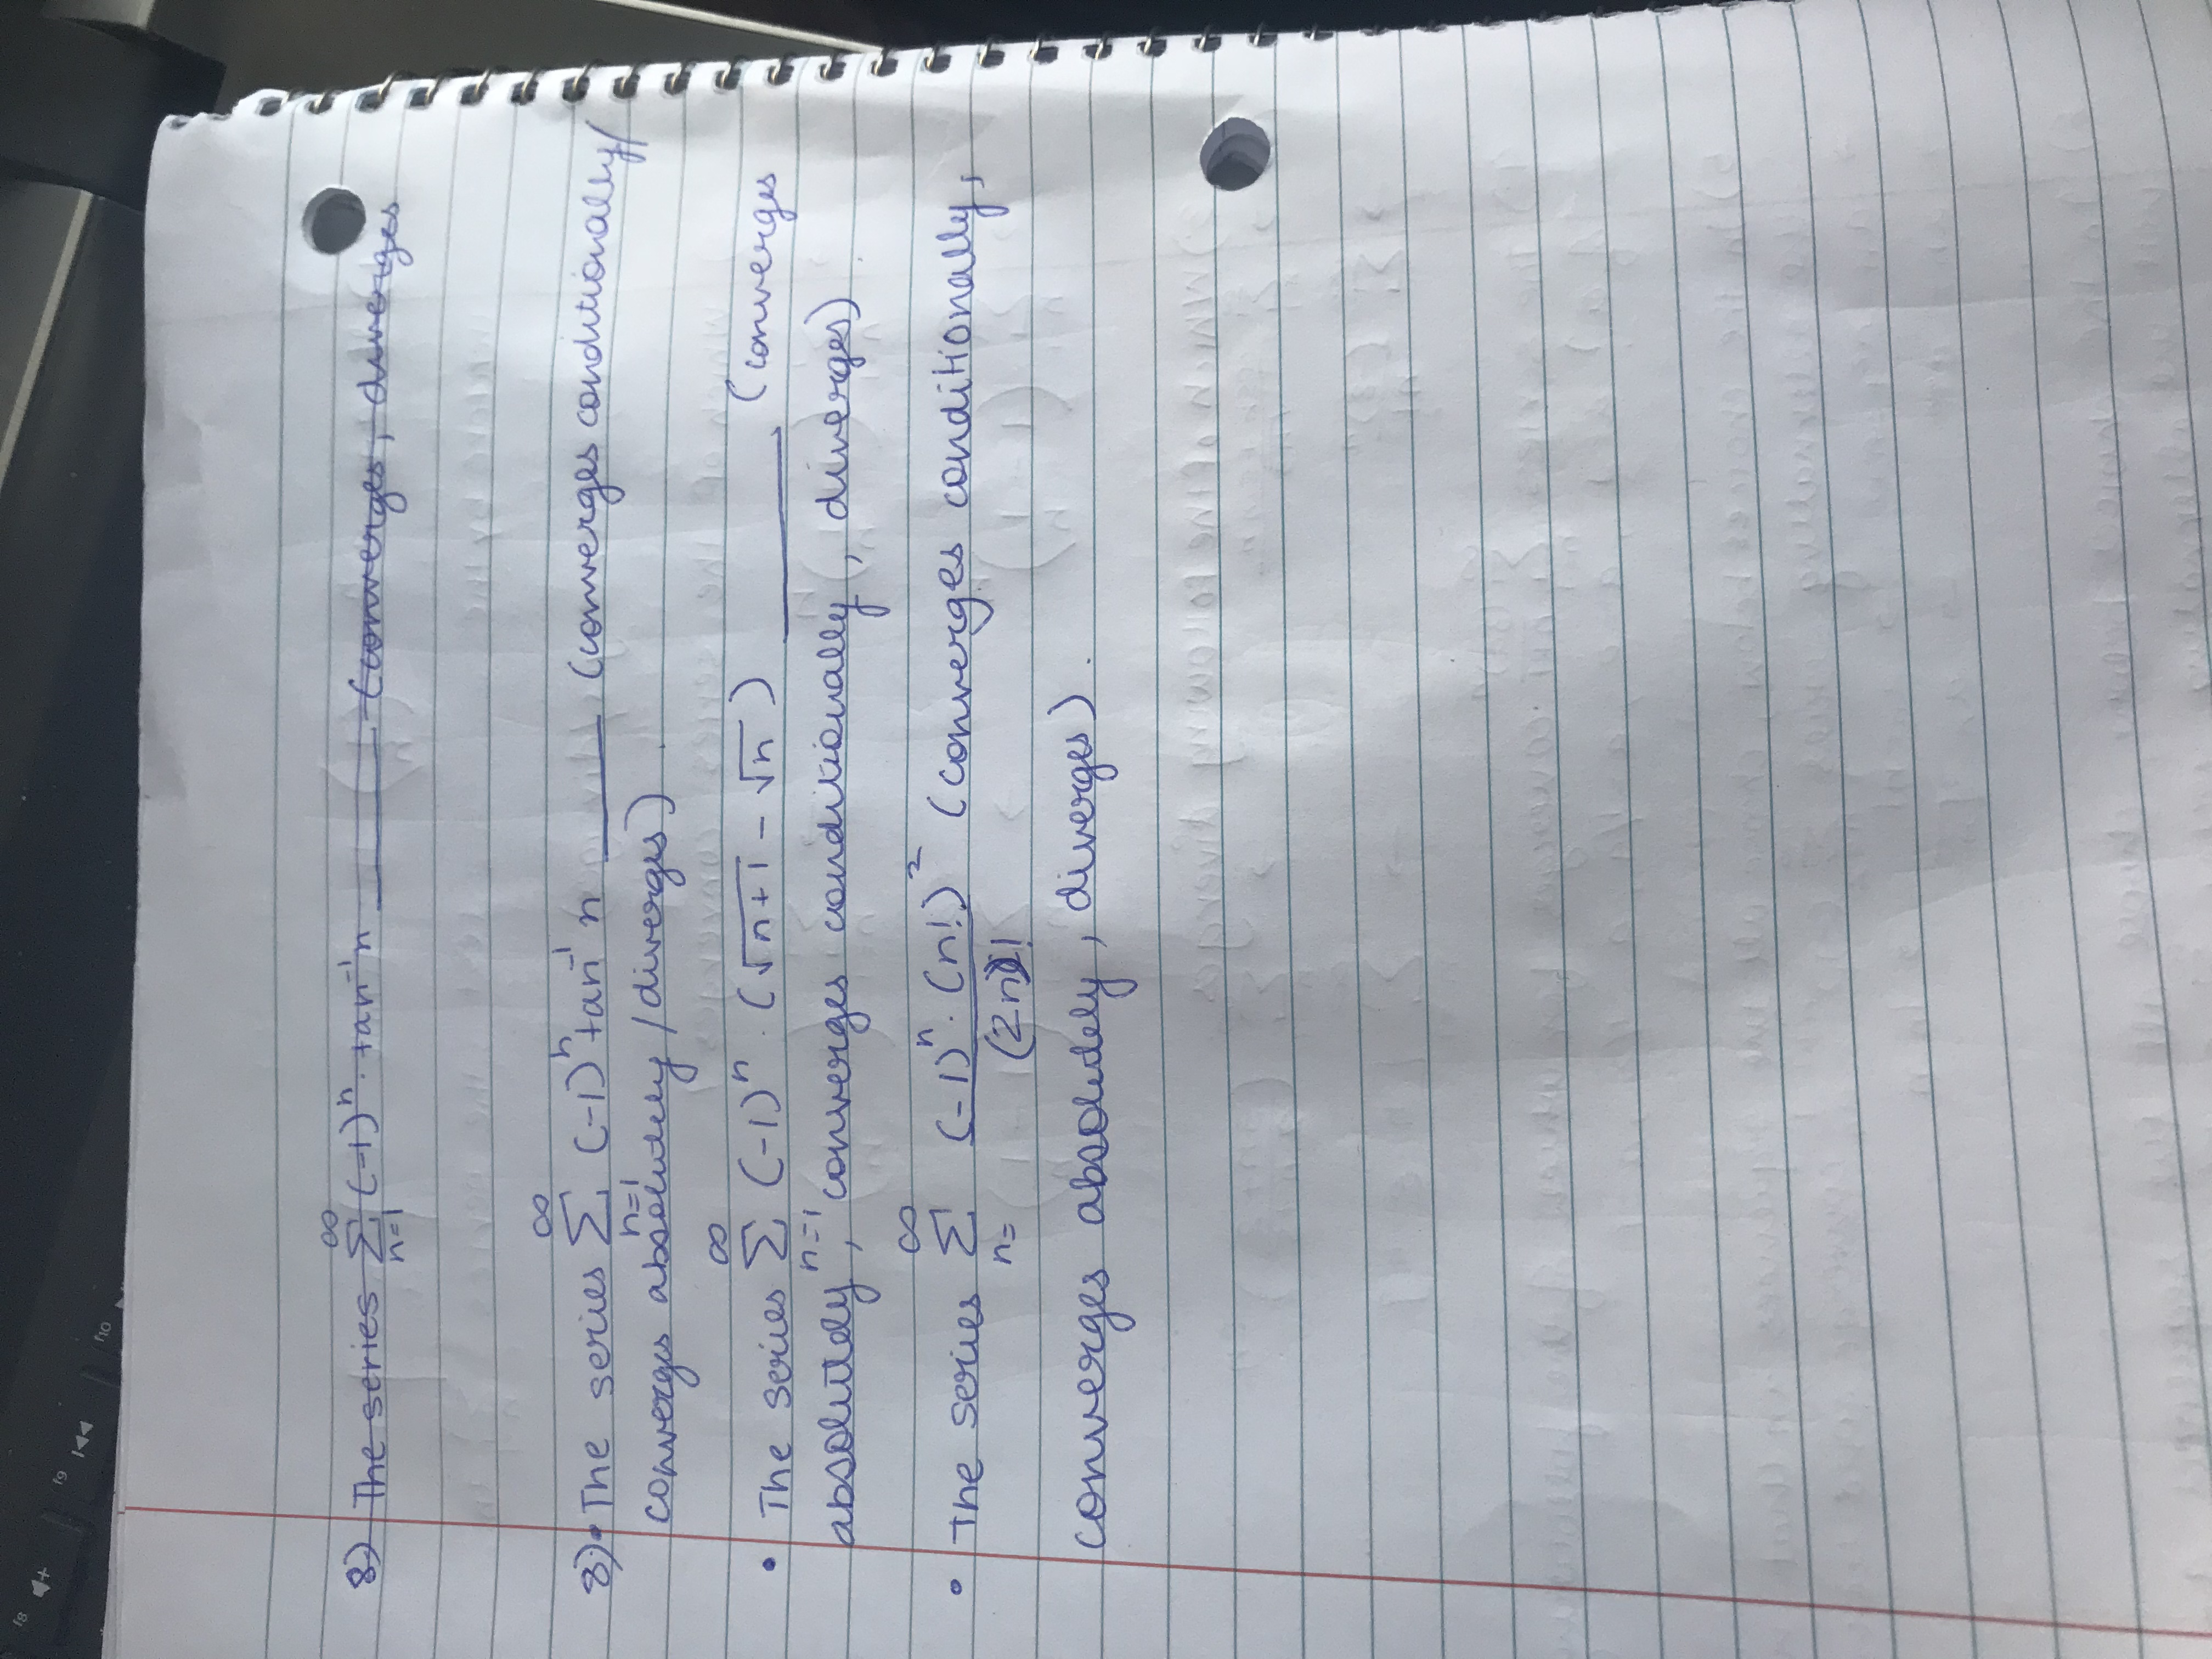 8) The series ∞∑n=1 (-1)^n · tan^-1 n ____ (converges, diverges
8) • The series ∞∑n=1 (-1)^n tan^-1 n ____ (converges conditionally/
converges absolutely/diverges).
• The series ∞∑n=1 (-1)^n · (√n+1 - √n) ____ (converges
absolutely, converges conditionally, diverges).
• The series ∞∑n= (-1)^n · (n!)^2 / (2n)! (converges conditionally,
converges absolutely, diverges).
f8
f9
f10